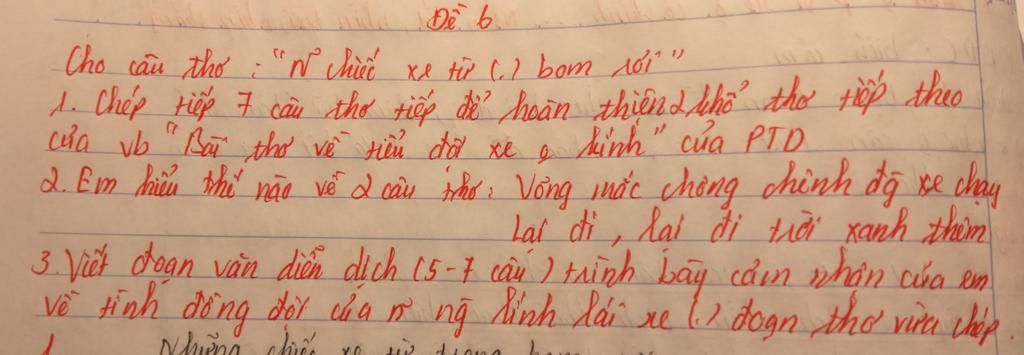 Đề 6
Cho câu thơ : "N~ chiếc xe từ (.) bom rơi"
1. Chép tiếp 7 câu thơ tiếp để hoàn thiện 2 khổ thơ tiếp theo
của vb "Bài thơ về tiểu đội xe o kính" của PTD
2. Em hiểu thế nào về 2 câu thơ: Võng mắc chông chênh đg xe chạy
Lại đi, lại đi trời xanh thêm
3. Viết đoạn văn diễn dịch (5-7 câu) trình bày cảm nhận của em
về tình đồng đội của n~ ng lính lái xe (.) đoạn thơ vừa chép.
1. Những chiếc xe từ trong bom